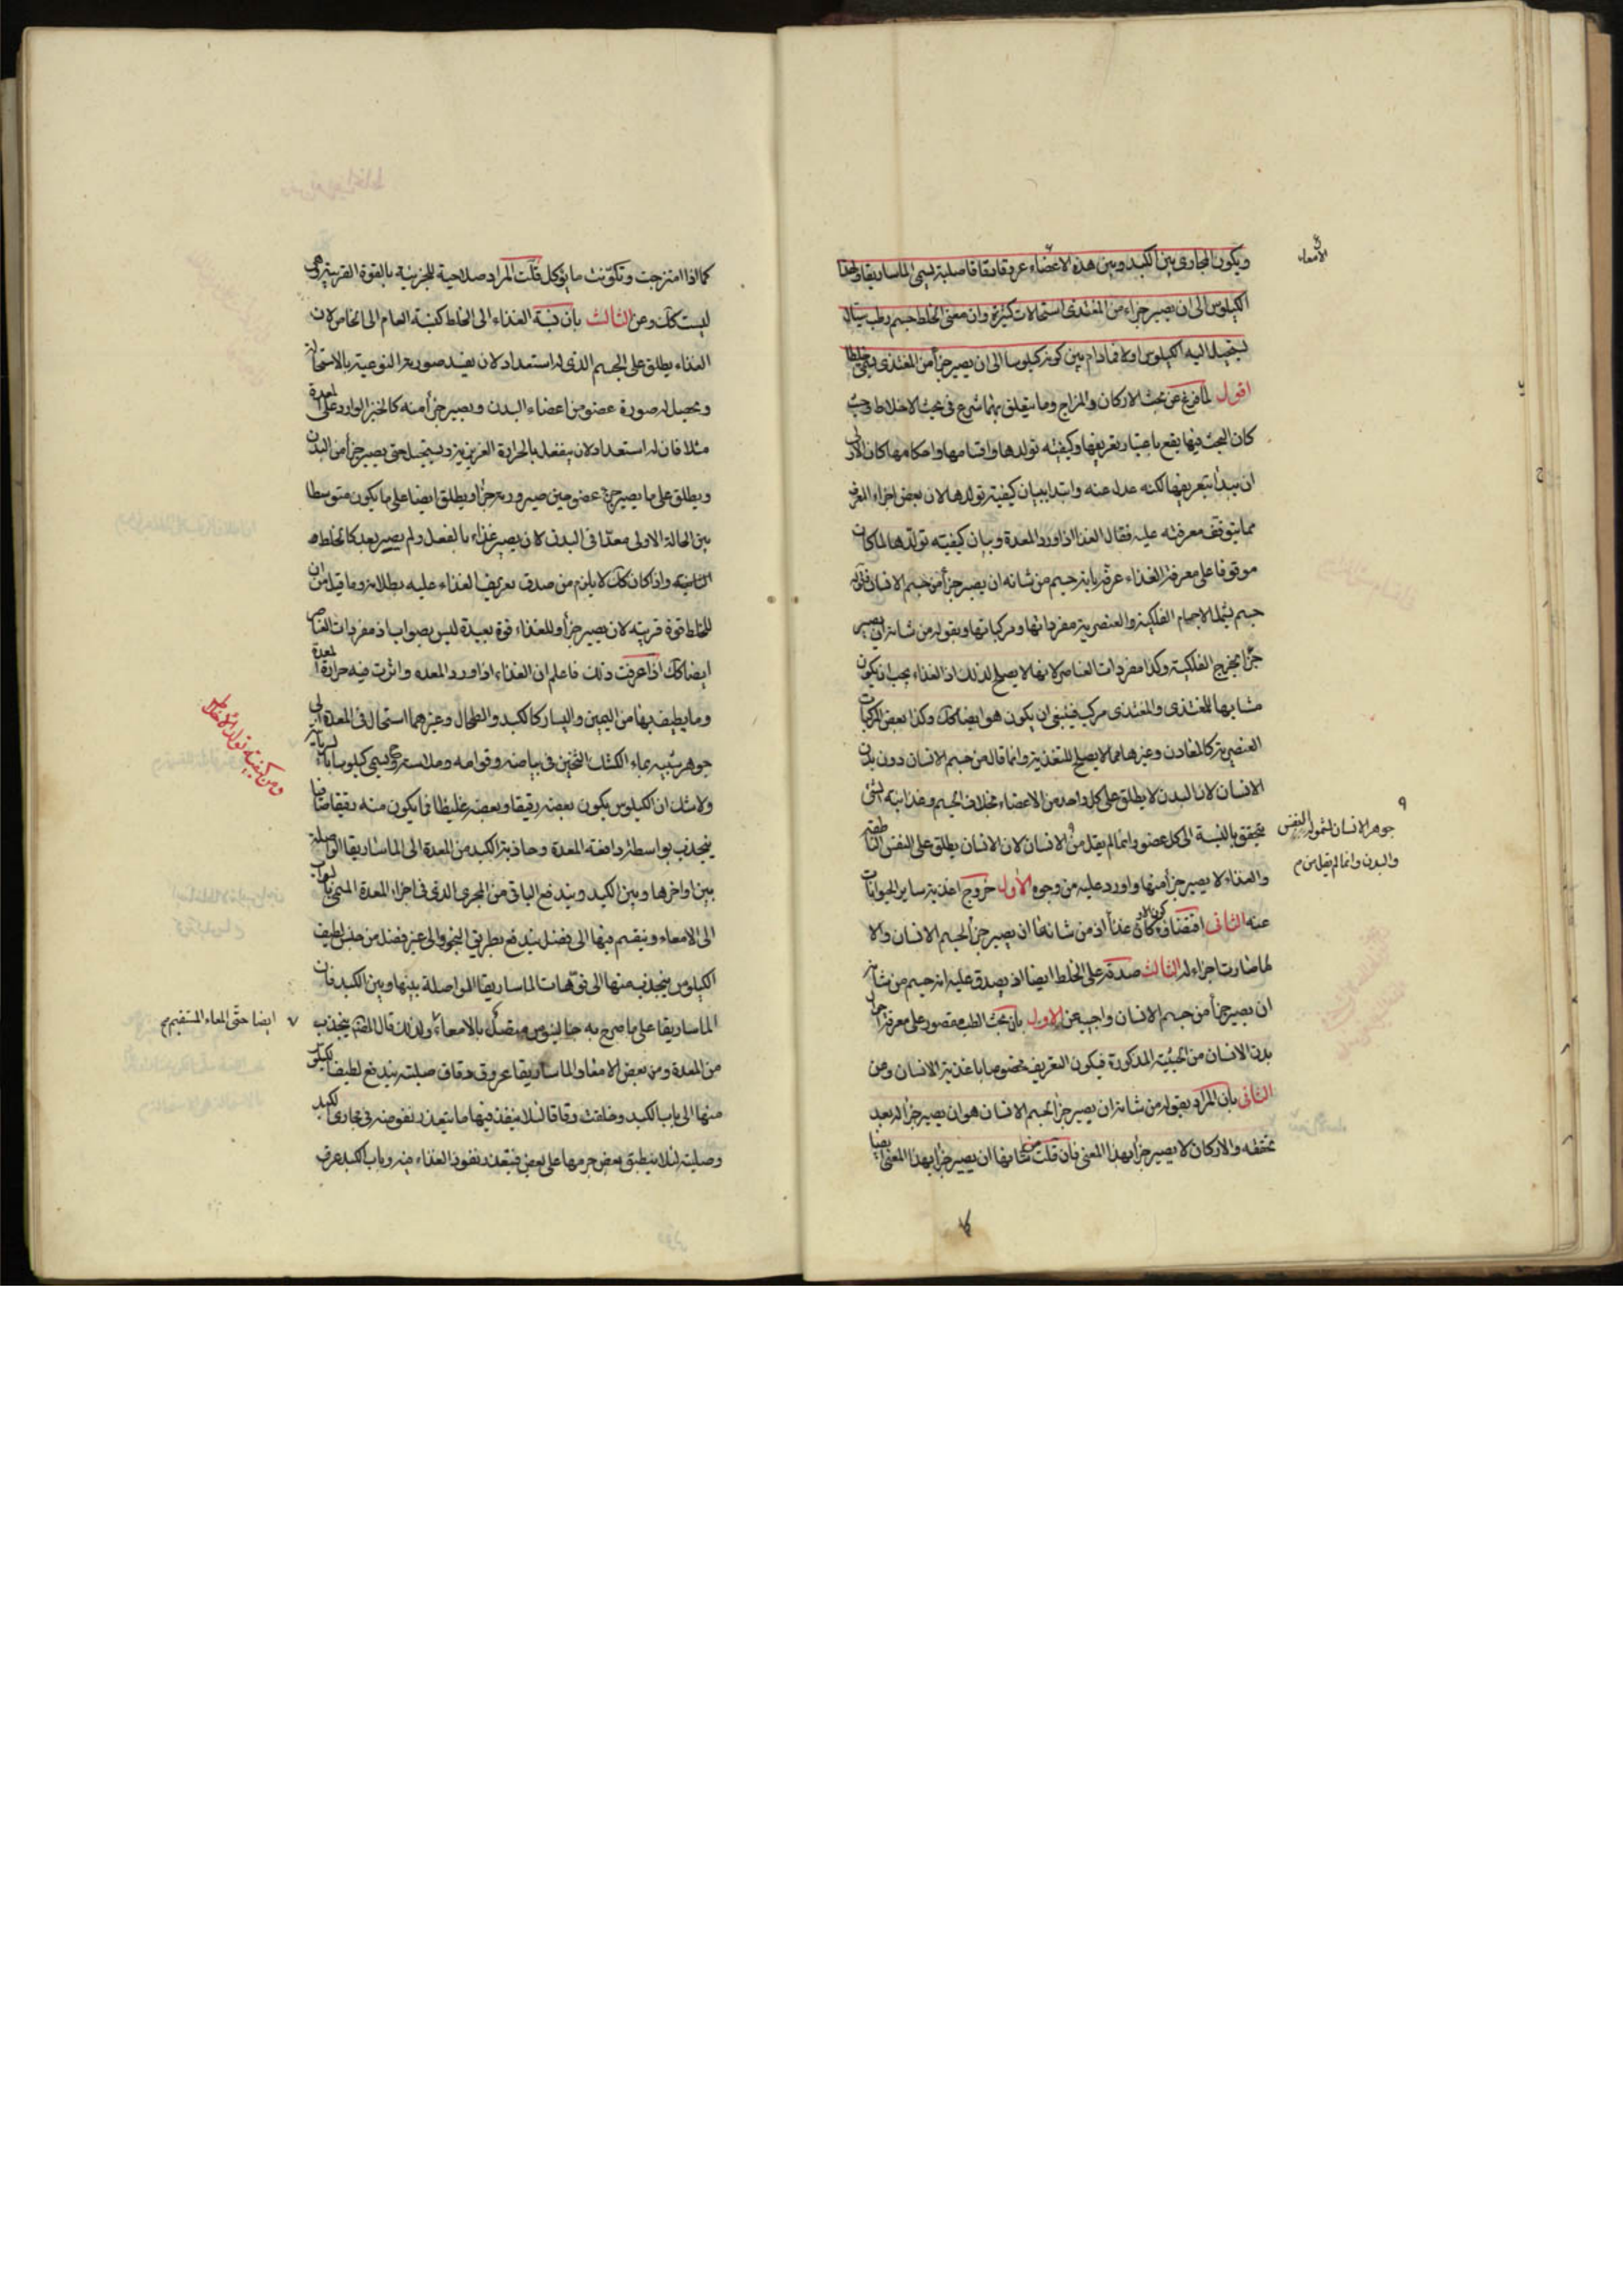 ويكون المجارى بين الكبد وبين هذه الاعضاء عروقا دقاقا صلبة يسمى الماساريقا ولهذا
الامعاء
الكيلوس الى ان يصير جزاء من المغتذى استحالات كثيرة وان معنى الخلط جسم رطب سيال
يستحيل اليه الكيلوس اولا فما دام بين كونه كيلوسا الى ان يصير جزأ من المغتذى يسمى خلطا
اقول لما فرغ عن بحث الاركان والمزاج وما يتعلق بهما شرع فى بحث الاخلاط وحيث
كان البحث فيها يقع باعتبار تعريفها وكيفية تولدها واقسامها واحكامها كان الاولى
ان يبدأ بتعريفها لكنه عدل عنه وابتدا ببيان كيفية تولدها لان بعض اجزاء المعرف
مما يتوقف معرفته عليه فقال الغذا اذا ورد المعدة وبيان كيفيته تولدها لما كان
موقوفا على معرفة الغذاء عرفه بانه جسم من شانه ان يصير جزأ من جسم الانسان فقوله
جسم يشمل الاجسام الفلكية والعنصرية مفرداتها ومركباتها وبقوله من شانه ان يصير
جزأ يخرج الفلكية وكذا مفردات العناصر لانها لا يصلح لذلك اذ الغذاء يجب ان يكون
مشابها للمغتذى والمغتذى مركب فينبغى ان يكون هو ايضا كك وكذا بعض المركبات
العنصرية كالمعادن وغيرها مما لا يصلح للتغذية وانما قال من جسم الانسان دون بدن
الانسان لان البدن لا يطلق على كل واحد من الاعضاء بخلاف الجسم وغذائية الشئ
يتحقق بالنسبة الى كل عضو وانما لم يقل من الانسان لان الانسان يطلق على النفس الناطقة
جوهر الانسان لشموله النفس
والبدن وانما لم يقل من م
والغذاء لا يصير جزأ منها واورد عليه من وجوه الاول خروج اغذية ساير الحيوانات
عنه الثانى اقتضاؤه كون الاركان غذأ اذ من شانها ان يصير جزأ لجسم الانسان والا
لما صارت اجزاء له الثالث صدقه على الخلط ايضا اذ يصدق عليه انه جسم من شانه
ان يصير جزأ من جسم الانسان واجيب عن الاول بان بحث الطب مقصور على معرفة احوال
بدن الانسان من الحيثية المذكورة فيكون التعريف مخصوصا باغذية الانسان وعن
الثانى بان المراد بقوله من شانه ان يصير جزأ لجسم الانسان هو ان يصير جزأ له بعد
تحققه والاركان لا يصير جزأ بهذا المعنى فان قلت من شانها ان يصير جزأ بهذا المعنى ايضا
كما اذا امتزجت وتكونت ما يؤكل قلت المراد صلاحية للجزئية بالقوة القريبة وهى
ليست كك وعن الثالث بان نسبة الغذاء الى الخلط كنسبة العام الى الخاص لان
الغذاء يطلق على الجسم الذى له استعداد لان يفسد صورته النوعية بالاستحالة
ويحصل له صورة عضو من اعضاء البدن ويصير جزأ منه كالخبز الوارد على المعدة
مثلا فان له استعداد لان ينفعل بالحرارة الغريزية ويستحيل حتى يصير جزأ من البدن
ويطلق على ما يصير جزء عضو حين صيرورته جزأ ويطلق ايضا على ما يكون متوسطا
بين الحالة الاولى معدّا فى البدن لان يصير غذاء بالفعل ولم يصر بعد كالخلط
واذا كان كك لا يلزم من صدق تعريف الغذاء عليه بطلانه وما قيل من ان
للخلط قوة قريبة لان يصير جزأ وللغذاء قوة بعيدة ليس بصواب اذ مفردات العناصر
ايضا كك اذا عرفت ذلك فاعلم ان الغذاء اذا ورد المعدة واثرت فيه حرارة المعدة
وما يطيف بها من اليمين واليسار كالكبد والطحال وغيرهما استحال فى المعدة الى
ومن كيفية تولد الاخلاط
جوهر شبيه بماء الكشك الثخين فى بياضه وقوامه وملاسته ويسمى كيلوسا
ولاشك ان الكيلوس يكون بعضه رقيقا وبعضه غليظا فما يكون منه رقيقا صافيا
ينجذب بواسطة دافعة المعدة وجاذبة الكبد من المعدة الى الماساريقا الواصلة
بين اواخرها وبين الكبد ويندفع الباقى من المجرى الذى فى اجزاء المعدة المسمى بالبواب
الى الامعاء وينقسم فيها الى فضل يندفع بطريق النجو والى غير فضل من جنس لطيف
الكيلوس ينجذب منها الى فوهات الماساريقا المواصلة بينها وبين الكبد فان
الماساريقا على ما صرح به جالينوس متصل بالامعاء ولذلك قال المصنف ينجذب
ايضا حتى المعاء المستقيم م
من المعدة ومن بعض الامعاء والماساريقا عروق دقاق صلبة يندفع لطيف الكيلوس
منها الى باب الكبد وخلقت دقاقا لئلا ينفذ فيها ما يتعذر نفوضه فى مجارى الكبد
وصلبة لئلا ينطبق بعض جرمها على بعض فيتعذر نفوذ الغذاء فيه وباب الكبد عرق